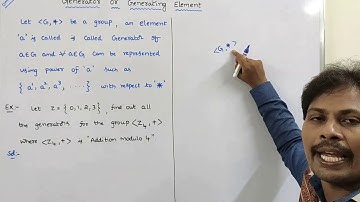 Generator or Generating Element
Let <G, *> be a group, an element
'a' is called is called Generator of
a∈G and ∀ a∈G can be represented
using power of 'a' such as
{ a¹, a², a³, ....} with respect to '*'
Ex:- Let Z = { 0, 1, 2, 3 }, find out all
the generators for the group <Z₄, +>
where <Z₄, +> is "Addition modulo 4"
Sol:-
<G, *>